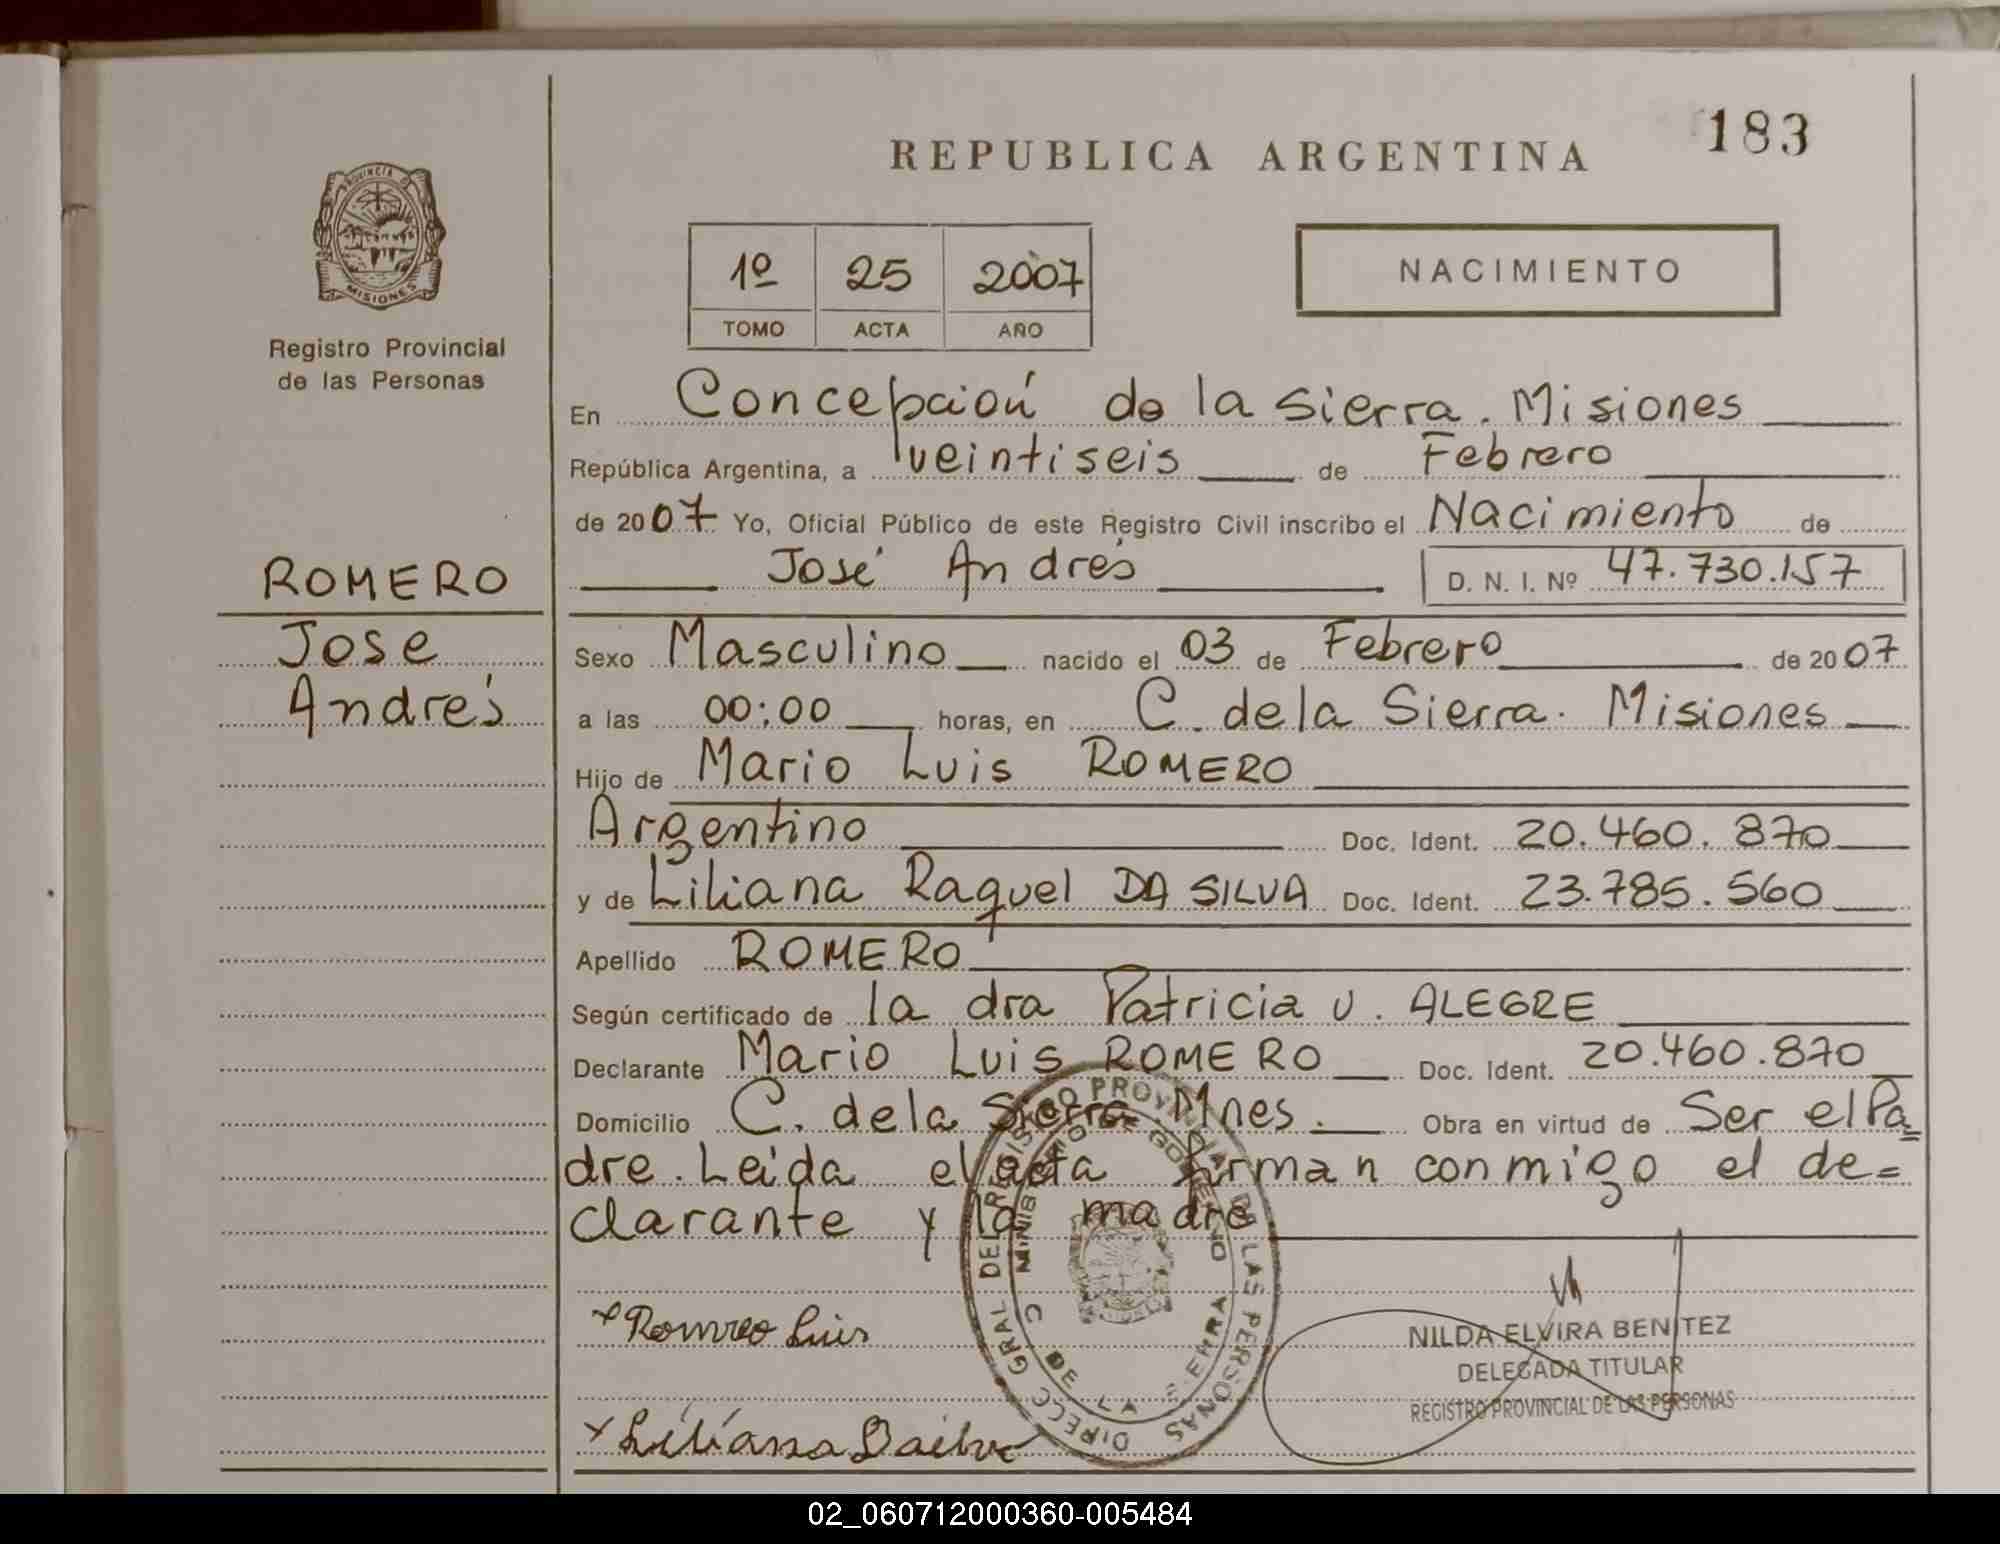 183
REPUBLICA ARGENTINA
PROVINCIA DE
MISIONES
Registro Provincial
de las Personas
1º 25 2007
TOMO ACTA AÑO
NACIMIENTO
ROMERO
Jose
Andrés
En Concepción de la Sierra. Misiones
República Argentina, a veintiseis de Febrero
de 2007 Yo, Oficial Público de este Registro Civil inscribo el Nacimiento de
José Andrés D. N. I. Nº 47.730.157
Sexo Masculino nacido el 03 de Febrero de 2007
a las 00:00 horas, en C. de la Sierra. Misiones
Hijo de Mario Luis ROMERO
Argentino Doc. Ident. 20.460.870
y de Liliana Raquel DA SILVA Doc. Ident. 23.785.560
Apellido ROMERO
Según certificado de la dra Patricia U. ALEGRE
Declarante Mario Luis ROMERO Doc. Ident. 20.460.870
Domicilio C. de la Sierra. Mnes. Obra en virtud de Ser el Pa=
dre. Leida el acta firman conmigo el de=
clarante y la madre
Romero Luis
Liliana Dasilva
DIRECC GRAL DEL REGISTRO PROVINCIAL DE LAS PERSONAS
MINISTERIO DE GOBIERNO
C DE LA SIERRA
NILDA ELVIRA BENITEZ
DELEGADA TITULAR
REGISTRO PROVINCIAL DE LAS PERSONAS
02_060712000360-005484